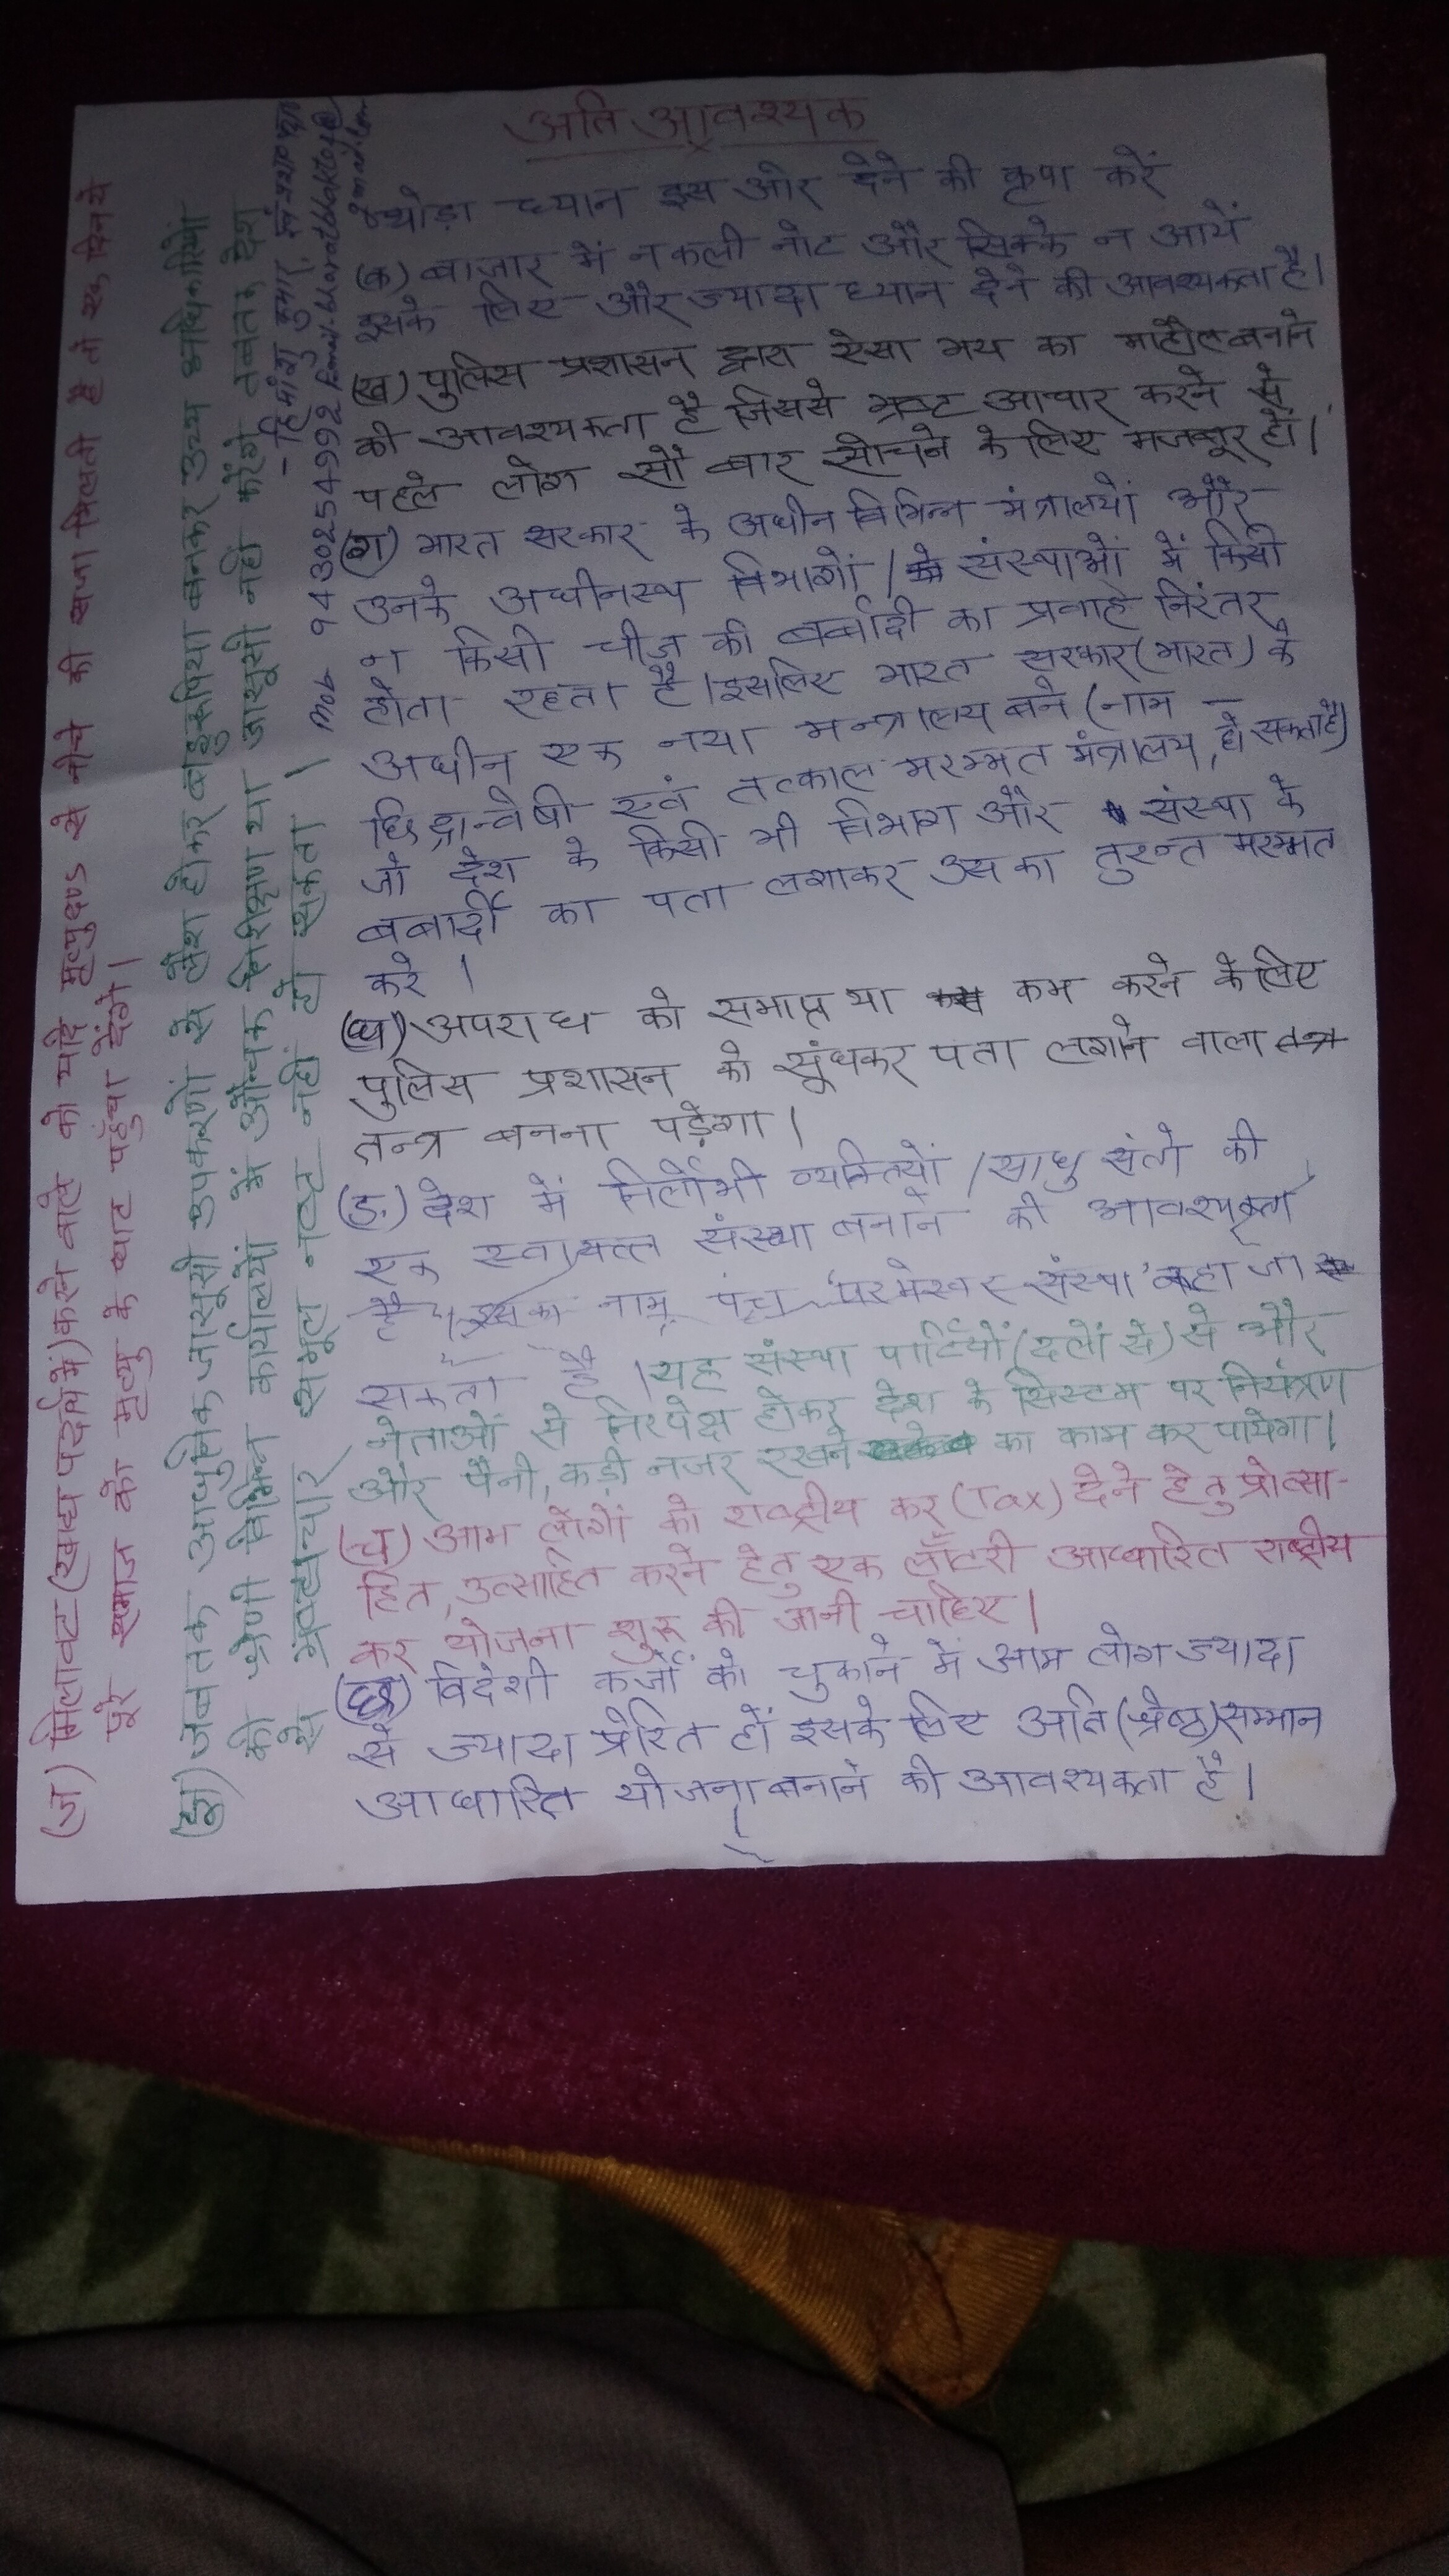 अति आवश्यक
थोड़ा ध्यान इस ओर देने की कृपा करें
(क) बाजार में नकली नोट और सिक्के न आयें
इसके लिए और ज्यादा ध्यान देने की आवश्यकता है।
(ख) पुलिस प्रशासन द्वारा ऐसा भय का माहौल बनाने
की आवश्यकता है जिससे भ्रष्ट आचार करने से
पहले लोग सौ बार सोचने के लिए मजबूर हों।
(ग) भारत सरकार के अधीन विभिन्न मंत्रालयों और
उनके अधीनस्थ विभागों / संस्थाओं में किसी
न किसी चीज की बर्बादी का प्रवाह निरंतर
होता रहता है। इसलिए भारत सरकार (भारत) के
अधीन एक नया मन्त्रालय बने (नाम –
छिद्रान्वेषी एवं तत्काल मरम्मत मंत्रालय, हो सकता है)
जो देश के किसी भी विभाग और संस्था के
बबार्दी का पता लगाकर उसका तुरन्त मरम्मत
करे ।
(घ) अपराध को समाप्त या कम करने के लिए
पुलिस प्रशासन को सूंघकर पता लगाने वाला तन्त्र
तन्त्र बनना पड़ेगा।
(ङ) देश में निर्लोभी व्यक्तियों / साधु संतो की
एक स्वायत्त संस्था बनाने की आवश्यकता
है। इसका नाम पंच परमेश्वर संस्था 'कहा जा
सकता है । यह संस्था पार्टियों (दलों से) से और
नेताओं से निरपेक्ष होकर देश के सिस्टम पर नियंत्रण
और पैनी, कड़ी नजर रखने का काम कर पायेगा।
(च) आम लोगों को राष्ट्रीय कर (Tax) देने हेतु प्रोत्सा-
हित, उत्साहित करने हेतु एक लॉटरी आधारित राष्ट्रीय
कर योजना शुरू की जानी चाहिए।
(छ) विदेशी कर्जों को चुकाने में आम लोग ज्यादा
से ज्यादा प्रेरित हों इसके लिए अति (श्रेष्ठ) सम्मान
आधारित योजना बनाने की आवश्यकता है।
(ज) मिलावट (खाद्य पदार्थ में) करने वाले को यदि मृत्युदण्ड से नीचे की सजा मिलती है तो एक दिन ये
पूरे समाज को मृत्यु के घाट पहुँचा देंगे।
(झ) जबतक आधुनिक जासूसी उपकरणों से लैश होकर बहुरूपिया बनकर उच्च अधिकारियों
की श्रेणी विभिन्न कार्यालयों में औचक निरीक्षण या जासूसी नहीं करेंगे तबतक देश
से भ्रष्टाचार समूल नष्ट नहीं हो सकता ।
- हिमांशु कुमार
Mob 9430254992